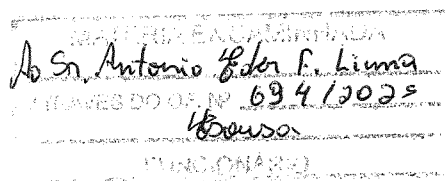 MATÉRIA ENCAMINHADA
Ao Sr. Antonio Eder F. Lima
ATRAVÉS DO OF. Nº 694/2025
Sousa
FUNCIONÁRIO